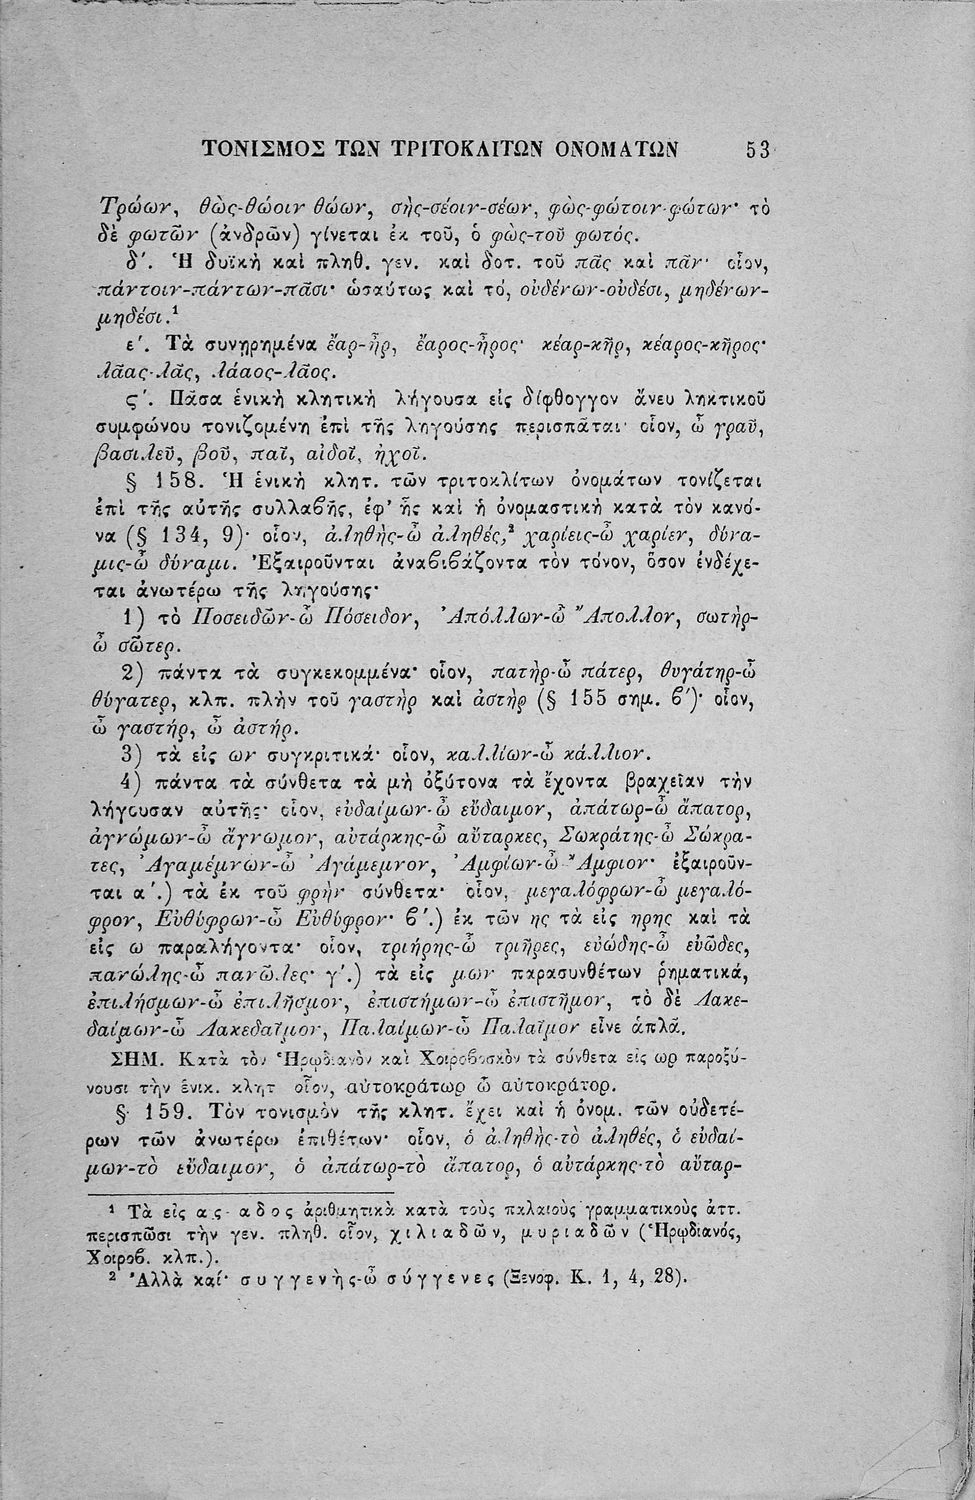 ΤΟΝΙΣΜΟΣ ΤΩΝ ΤΡΙΤΟΚΛΙΤΩΝ ΟΝΟΜΑΤΩΝ 53
Τρώων, θὼς-θώοιν θώων, σὴς-σέοιν-σέων, φὼς-φώτοιν-φώτων· τὸ
δὲ φωτῶν (ἀνδρῶν) γίνεται ἐκ τοῦ, ὁ φὼς-τοῦ φωτός.
δʹ. Ἡ δυϊκὴ καὶ πληθ. γεν. καὶ δοτ. τοῦ πᾶς καὶ πᾶν· οἷον,
πάντοιν-πάντων-πᾶσι· ὡσαύτως καὶ τό, οὐδένων-οὐδέσι, μηδένων-
μηδέσι.¹
εʹ. Τὰ συνῃρημένα ἔαρ-ἦρ, ἔαρος-ἦρος· κέαρ-κῆρ, κέαρος-κῆρος·
λᾶας-λᾶς, λάαος-λᾶος.
ϛʹ. Πᾶσα ἑνικὴ κλητικὴ λήγουσα εἰς δίφθογγον ἄνευ ληκτικοῦ
συμφώνου τονιζομένη ἐπὶ τῆς ληγούσης περισπᾶται· οἷον, ὦ γραῦ,
βασιλεῦ, βοῦ, παῖ, αἰδοῖ, ἠχοῖ.
§ 158. Ἡ ἑνικὴ κλητ. τῶν τριτοκλίτων ὀνομάτων τονίζεται
ἐπὶ τῆς αὐτῆς συλλαϐῆς, ἐφ' ἧς καὶ ἡ ὀνομαστικὴ κατὰ τὸν κανό-
να (§ 134, 9)· οἷον, ἀληθὴς-ὦ ἀληθές,² χαρίεις-ὦ χαρίεν, δύνα-
μις-ὦ δύναμι. Ἐξαιροῦνται ἀναϐιϐάζοντα τὸν τόνον, ὅσον ἐνδέχε-
ται ἀνωτέρω τῆς ληγούσης·
1) τὸ Ποσειδῶν-ὦ Πόσειδον, Ἀπόλλων-ὦ Ἄπολλον, σωτὴρ-
ὦ σῶτερ.
2) πάντα τὰ συγκεκομμένα· οἷον, πατὴρ-ὦ πάτερ, θυγάτηρ-ὦ
θύγατερ, κλπ. πλὴν τοῦ γαστὴρ καὶ ἀστὴρ (§ 155 σημ. ϐʹ)· οἷον,
ὦ γαστήρ, ὦ ἀστήρ.
3) τὰ εἰς ων συγκριτικά· οἷον, καλλίων-ὦ κάλλιον.
4) πάντα τὰ σύνθετα τὰ μὴ ὀξύτονα τὰ ἔχοντα βραχεῖαν τὴν
λήγουσαν αὐτῆς· οἷον, εὐδαίμων-ὦ εὔδαιμον, ἀπάτωρ-ὦ ἄπατορ,
ἀγνώμων-ὦ ἄγνωμον, αὐτάρκης-ὦ αὔταρκες, Σωκράτης-ὦ Σώκρα-
τες, Ἀγαμέμνων-ὦ Ἀγάμεμνον, Ἀμφίων-ὦ Ἄμφιον· ἐξαιροῦν-
ται αʹ.) τὰ ἐκ τοῦ φρὴν σύνθετα· οἷον, μεγαλόφρων-ὦ μεγαλό-
φρον, Εὐθύφρων-ὦ Εὐθύφρον· ϐʹ.) ἐκ τῶν ης τὰ εἰς ηρης καὶ τὰ
εἰς ω παραλήγοντα· οἷον, τριήρης-ὦ τριῆρες, εὐώδης-ὦ εὐῶδες,
πανώλης-ὦ πανῶλες· γʹ.) τὰ εἰς μων παρασυνθέτων ῥηματικά,
ἐπιλήσμων-ὦ ἐπιλῆσμον, ἐπιστήμων-ὦ ἐπιστῆμον, τὸ δὲ Λακε-
δαίμων-ὦ Λακεδαῖμον, Παλαίμων-ὦ Παλαῖμον εἶνε ἁπλᾶ.
ΣΗΜ. Κατὰ τὸν Ἡρῳδιανὸν καὶ Χοιροϐοσκὸν τὰ σύνθετα εἰς ωρ παροξύ-
νουσι τὴν ἑνικ. κλητ οἷον, αὐτοκράτωρ ὦ αὐτοκράτορ.
§ 159. Τὸν τονισμὸν τῆς κλητ. ἔχει καὶ ἡ ὀνομ. τῶν οὐδετέ-
ρων τῶν ἀνωτέρω ἐπιθέτων· οἷον, ὁ ἀληθὴς-τὸ ἀληθές, ὁ εὐδαί-
μων-τὸ εὔδαιμον, ὁ ἀπάτωρ-τὸ ἄπατορ, ὁ αὐτάρκης-τὸ αὔταρ-
¹ Τὰ εἰς ας-αδος ἀριθμητικὰ κατὰ τοὺς παλαιοὺς γραμματικοὺς ἀττ.
περισπῶσι τὴν γεν. πληθ. οἷον, χιλιαδῶν, μυριαδῶν (Ἡρῳδιανός,
Χοιροϐ. κλπ.).
² Ἀλλὰ καί· συγγενὴς-ὦ σύγγενες (Ξενοφ. Κ. 1, 4, 28).